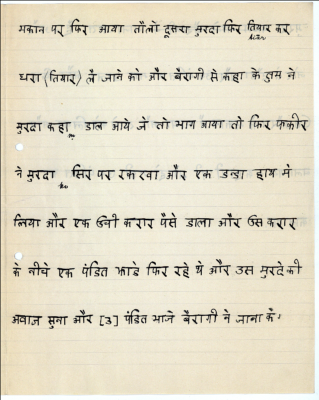 मकान पर फिर आया तौलो दूसरा मुरदा फिर तियार कर
धरा (तियार) लै जाने को और बैरागी से कहा के तुम ने
मुरदा कहा डाल आये जे तो भाग आया तो फिर फकीर
ने मुरदा सिर पर रकखा और एक डन्डा हाथ मे
लिया और एक उनी करार पैसे डाला और उस करार
के नीचे एक पंडित झाडे फिर रहे थे और उस मुरदे की
अवाज सुना और [3] पंडित भाजे बैरागी ने जाना के